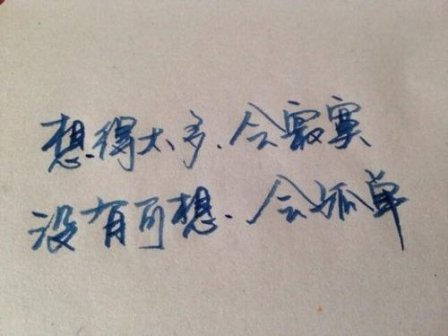 想得太多、会寂寞
没有可想、会孤单